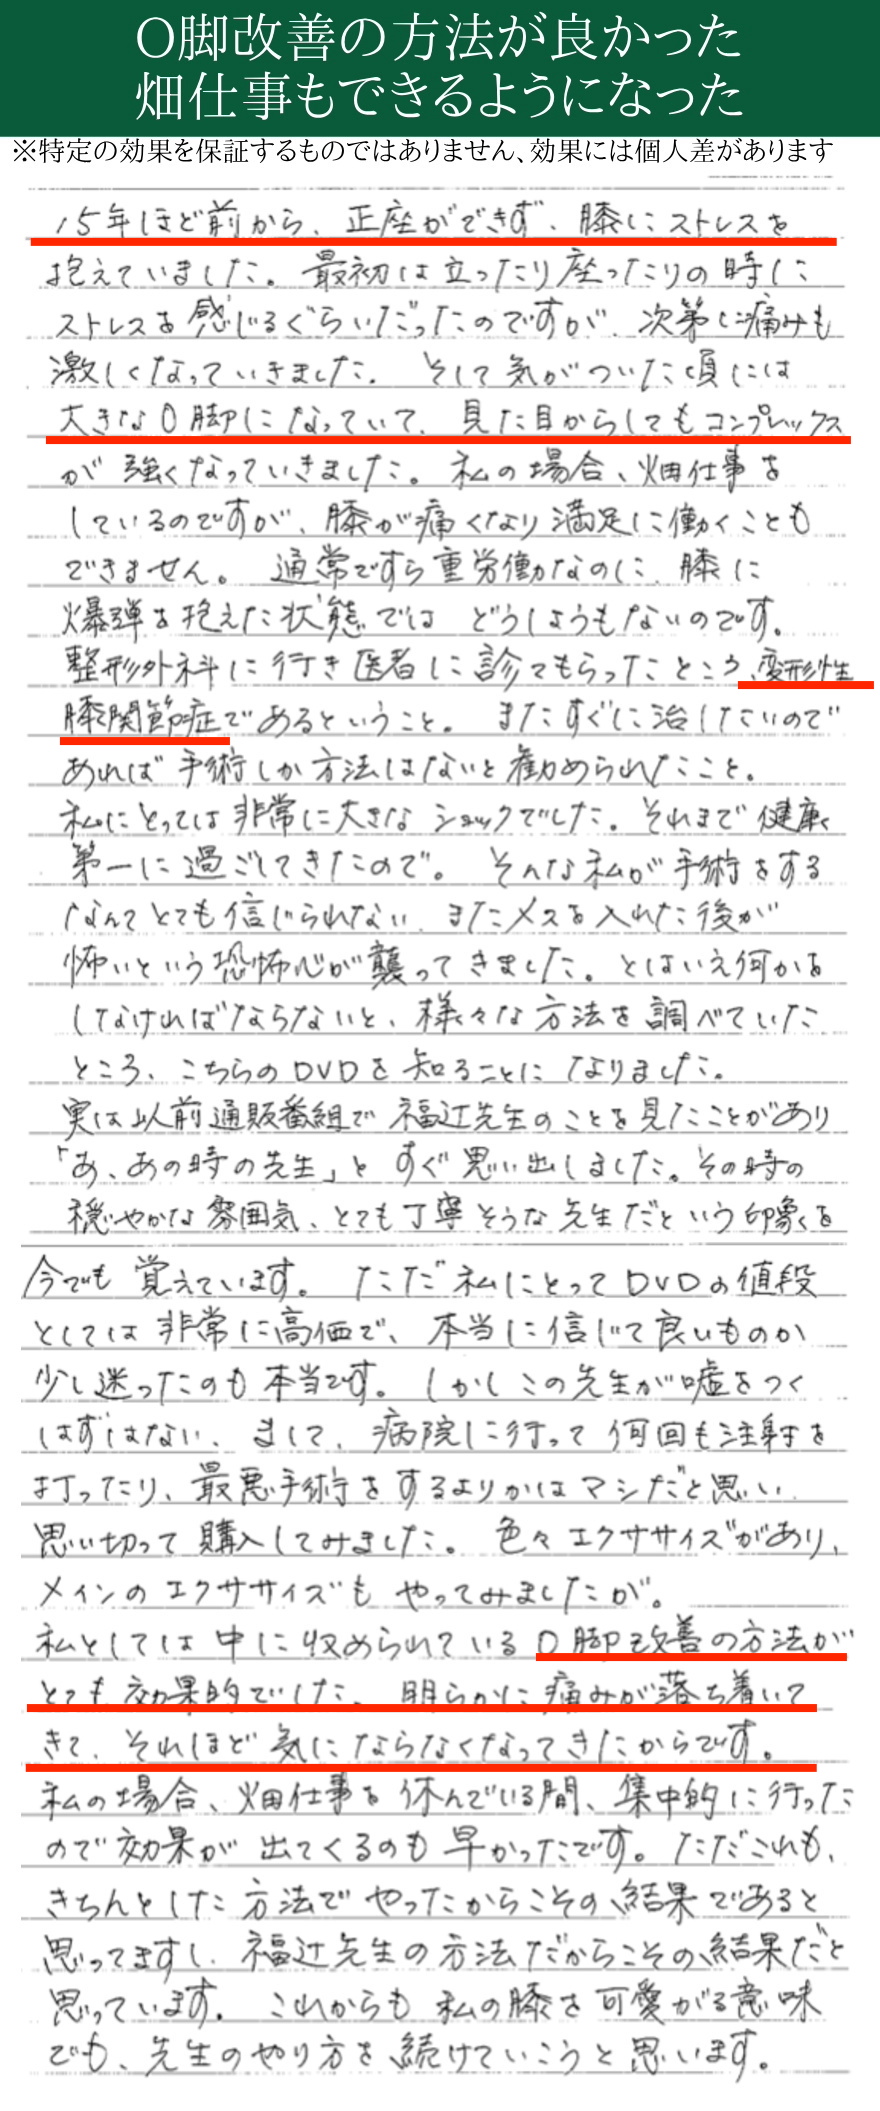 O脚改善の方法が良かった
畑仕事もできるようになった
※特定の効果を保証するものではありません、効果には個人差があります
15年ほど前から、正座ができず、膝にストレスを
抱えていました。最初は立ったり座ったりの時に
ストレスを感じるぐらいだったのですが、次第に痛みも
激しくなっていきました。そして気がついた頃には
大きなO脚になっていて、見た目からしてもコンプレックス
が強くなっていきました。私の場合、畑仕事を
しているのですが、膝が痛くなり満足に働くことも
できません。通常ですら重労働なのに、膝に
爆弾を抱えた状態ではどうしようもないのです。
整形外科に行き医者に診てもらったところ、変形性
膝関節症であるということ。またすぐに治したいので
あれば手術しか方法はないと勧められたこと。
私にとっては非常に大きなショックでした。それまで健康
第一に過ごしてきたので。そんな私が手術をする
なんてとても信じられない、またメスを入れた後が
怖いという恐怖心が襲ってきました。とはいえ何かを
しなければならないと、様々な方法を調べていた
ところ、こちらのDVDを知ることになりました。
実は以前通販番組で福辻先生のことを見たことがあり
「あ、あの時の先生」とすぐ思い出しました。その時の
穏やかな雰囲気、とても丁寧そうな先生だという印象を
今でも覚えています。ただ私にとってDVDの値段
としては非常に高価で、本当に信じて良いものか
少し迷ったのも本当です。しかしこの先生が嘘をつく
はずはない、まして、病院に行って何回も注射を
打ったり、最悪手術をするよりかはマシだと思い、
思い切って購入してみました。色々エクササイズがあり、
メインのエクササイズもやってみましたが。
私としては中に収められているO脚改善の方法が
とても効果的でした。明らかに痛みが落ち着いて
きて、それほど気にならなくなってきたからです。
私の場合、畑仕事を休んでいる間、集中的に行った
ので効果が出てくるのも早かったです。ただこれも、
きちんとした方法でやったからこその、結果であると
思ってますし、福辻先生の方法だからこその、結果だと
思っています。これからも私の膝を可愛がる意味
でも、先生のやり方を、続けていこうと思います。